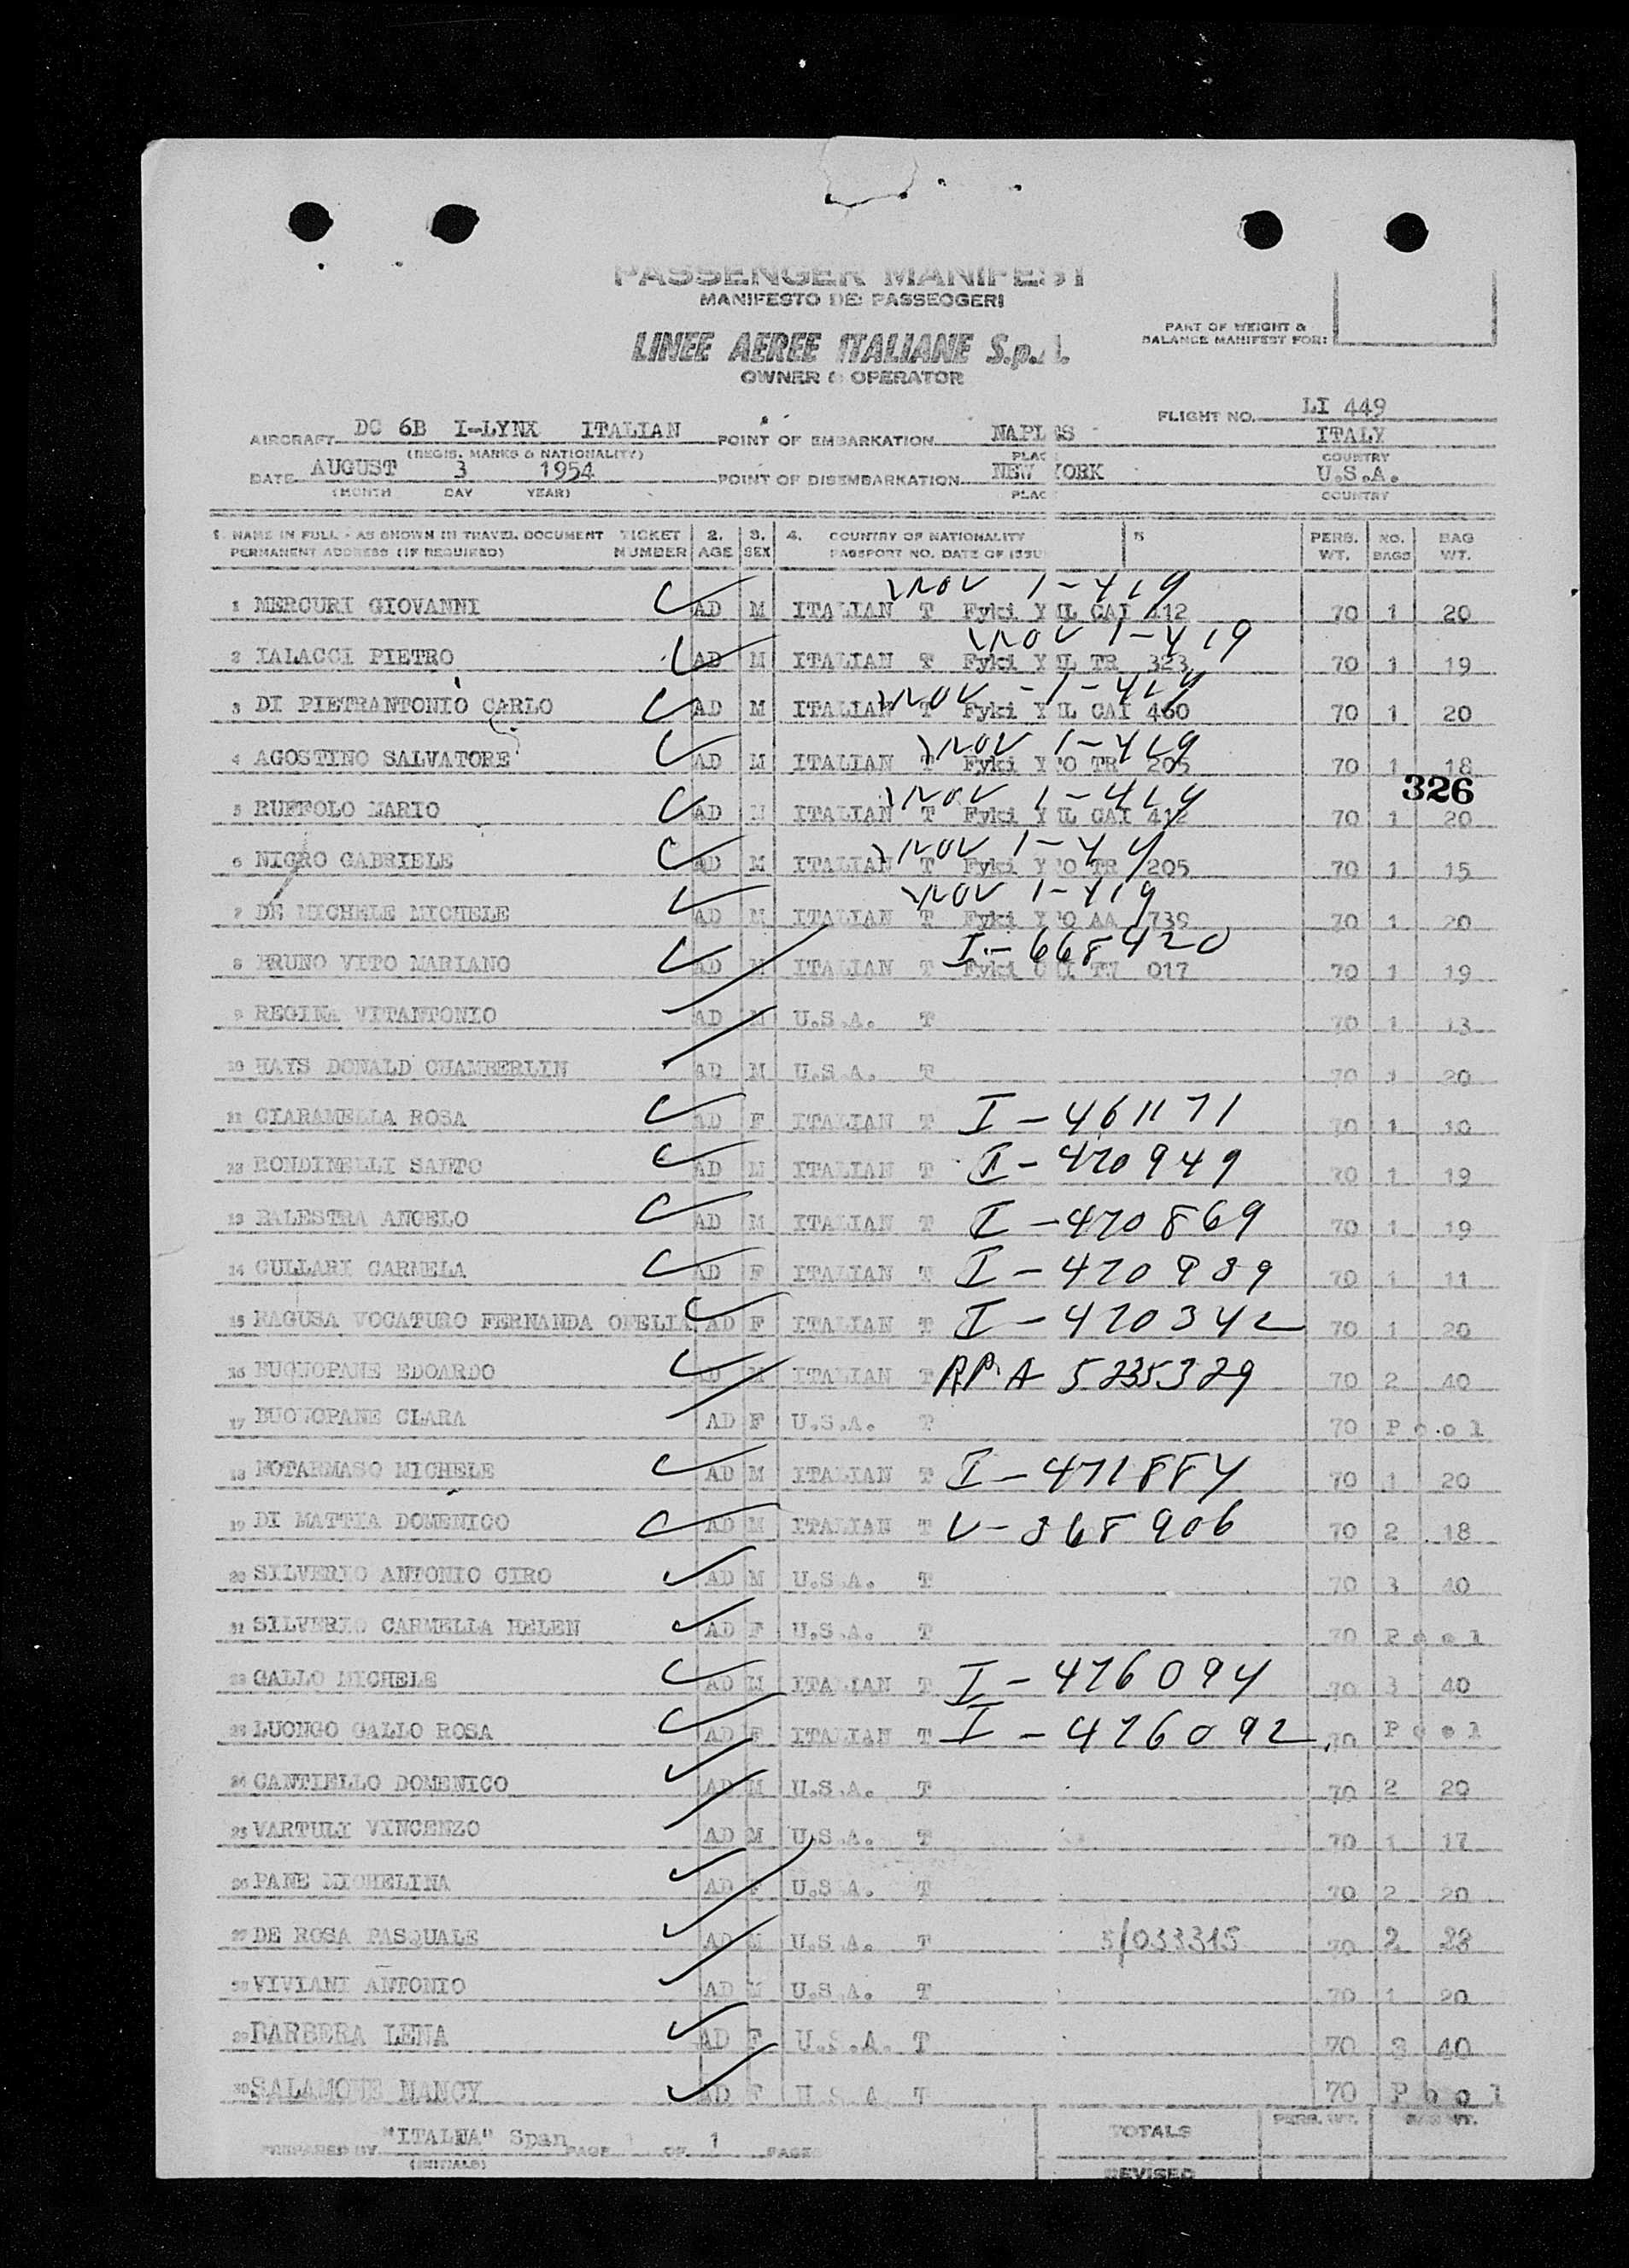 PASSENGER MANIFEST
MANIFESTO DEI PASSEGGERI
LINEE AEREE ITALIANE S.p.A.
OWNER & OPERATOR
PART OF WEIGHT &
BALANCE MANIFEST FOR:
FLIGHT NO. LI 449
AIRCRAFT DC 6B I-LYNX ITALIAN POINT OF EMBARKATION NAPLES ITALY
(REGIS. MARKS & NATIONALITY) PLACE COUNTRY
DATE AUGUST 3 1954 POINT OF DISEMBARKATION NEW YORK U.S.A.
(MONTH DAY YEAR) PLACE COUNTRY
1. NAME IN FULL - AS SHOWN IN TRAVEL DOCUMENT TICKET 2. 3. 4. COUNTRY OF NATIONALITY 5 PERS. NO. BAG
PERMANENT ADDRESS (IF REQUIRED) NUMBER AGE SEX PASSPORT NO. DATE OF ISSU WT. BAGS WT.
1-419
1 MERCURI GIOVANNI AD M ITALIAN T Fyki CAI 412 70 1 20
1-419
2 IALACCI PIETRO AD M ITALIAN T Fyki TR 323 70 1 19
-1-419
3 DI PIETRANTONIO CARLO AD M ITALIAN T Fyki CAI 460 70 1 20
1-419
4 AGOSTINO SALVATORE AD M ITALIAN T Fyki TR 205 70 1 18
326
1-419
5 RUFFOLO MARIO AD M ITALIAN T Fyki CAI 412 70 1 20
6 NIGRO GABRIELE AD M ITALIAN T Fyki TR 205 70 1 15
1-419
7 DE MICHELE MICHELE AD M ITALIAN T Fyki AA 739 70 1 20
I-668420
8 BRUNO VITO MARIANO AD M ITALIAN T Fyki 017 70 1 19
9 REGINA VITANTONIO AD M U.S.A. T 70 1 13
10 HAYS DONALD CHAMBERLIN AD M U.S.A. T 70 1 20
11 CIARAMELLA ROSA AD F ITALIAN T I-461171 70 1 10
12 RONDINELLI SANTO AD M ITALIAN T I-470949 70 1 19
13 BALESTRA ANGELO AD M ITALIAN T I-470869 70 1 19
14 CULLARI CARMELA AD F ITALIAN T I-470989 70 1 11
15 RAGUSA VOCATURO FERNANDA OFELIA AD F ITALIAN T I-470342 70 1 20
16 BUONOPANE EDOARDO AD M ITALIAN T A 5235329 70 2 40
17 BUONOPANE CLARA AD F U.S.A. T 70 Pool
18 NOTARMASO MICHELE AD M ITALIAN T I-471884 70 1 20
19 DI MATTIA DOMENICO AD M ITALIAN T V-368906 70 2 18
20 SILVERIO ANTONIO CIRO AD M U.S.A. T 70 3 40
21 SILVERIO CARMELLA HELEN AD F U.S.A. T 70 Pool
22 GALLO MICHELE AD M ITALIAN T I-476094 70 3 40
23 LUONGO GALLO ROSA AD F ITALIAN T I-476092 70 Pool
24 CANTIELLO DOMENICO AD M U.S.A. T 70 2 20
25 VARTULI VINCENZO AD M U.S.A. T 70 1 17
26 PANE MICHELINA AD F U.S.A. T 70 2 20
27 DE ROSA PASQUALE AD M U.S.A. T 5/033315 70 2 23
28 VIVIANI ANTONIO AD M U.S.A. T 70 1 20
29 BARBERA LENA AD F U.S.A. T 70 3 40
30 SALAMONE NANCY AD F U.S.A. T 70 Pool
PREPARED BY "ITALNA" Span PAGE 1 OF 1 PAGES TOTALS PERS. WT. BAG WT.
(INITIALS)
REVISED